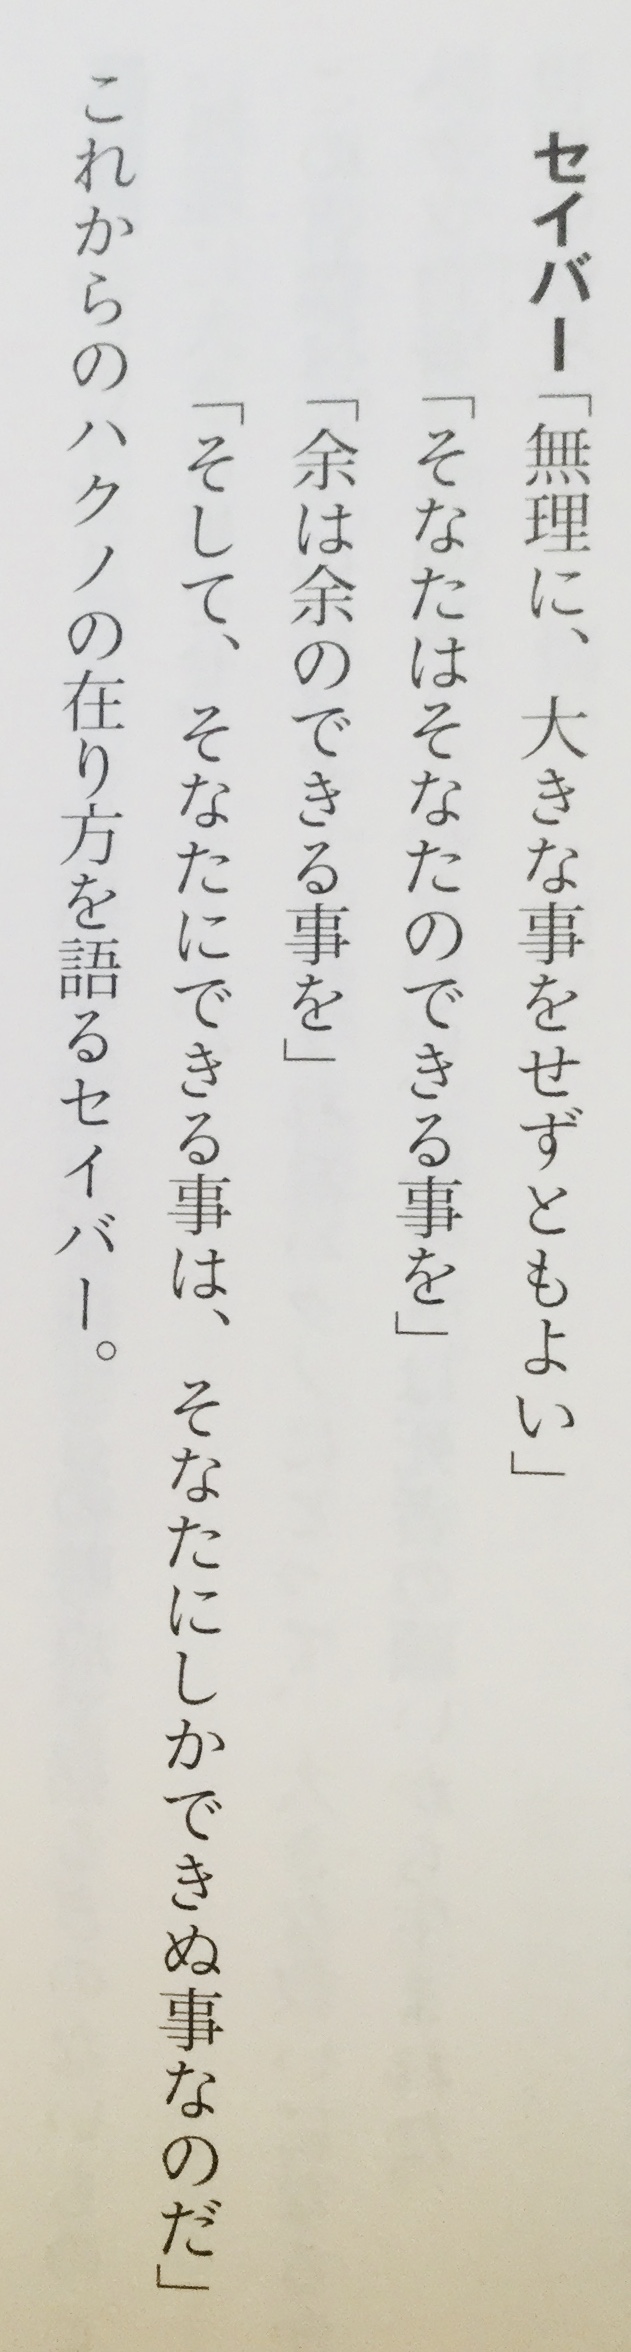 セイバー「無理に、大きな事をせずともよい」
「そなたはそなたのできる事を」
「余は余のできる事を」
「そして、そなたにできる事は、そなたにしかできぬ事なのだ」
これからのハクノの在り方を語るセイバー。